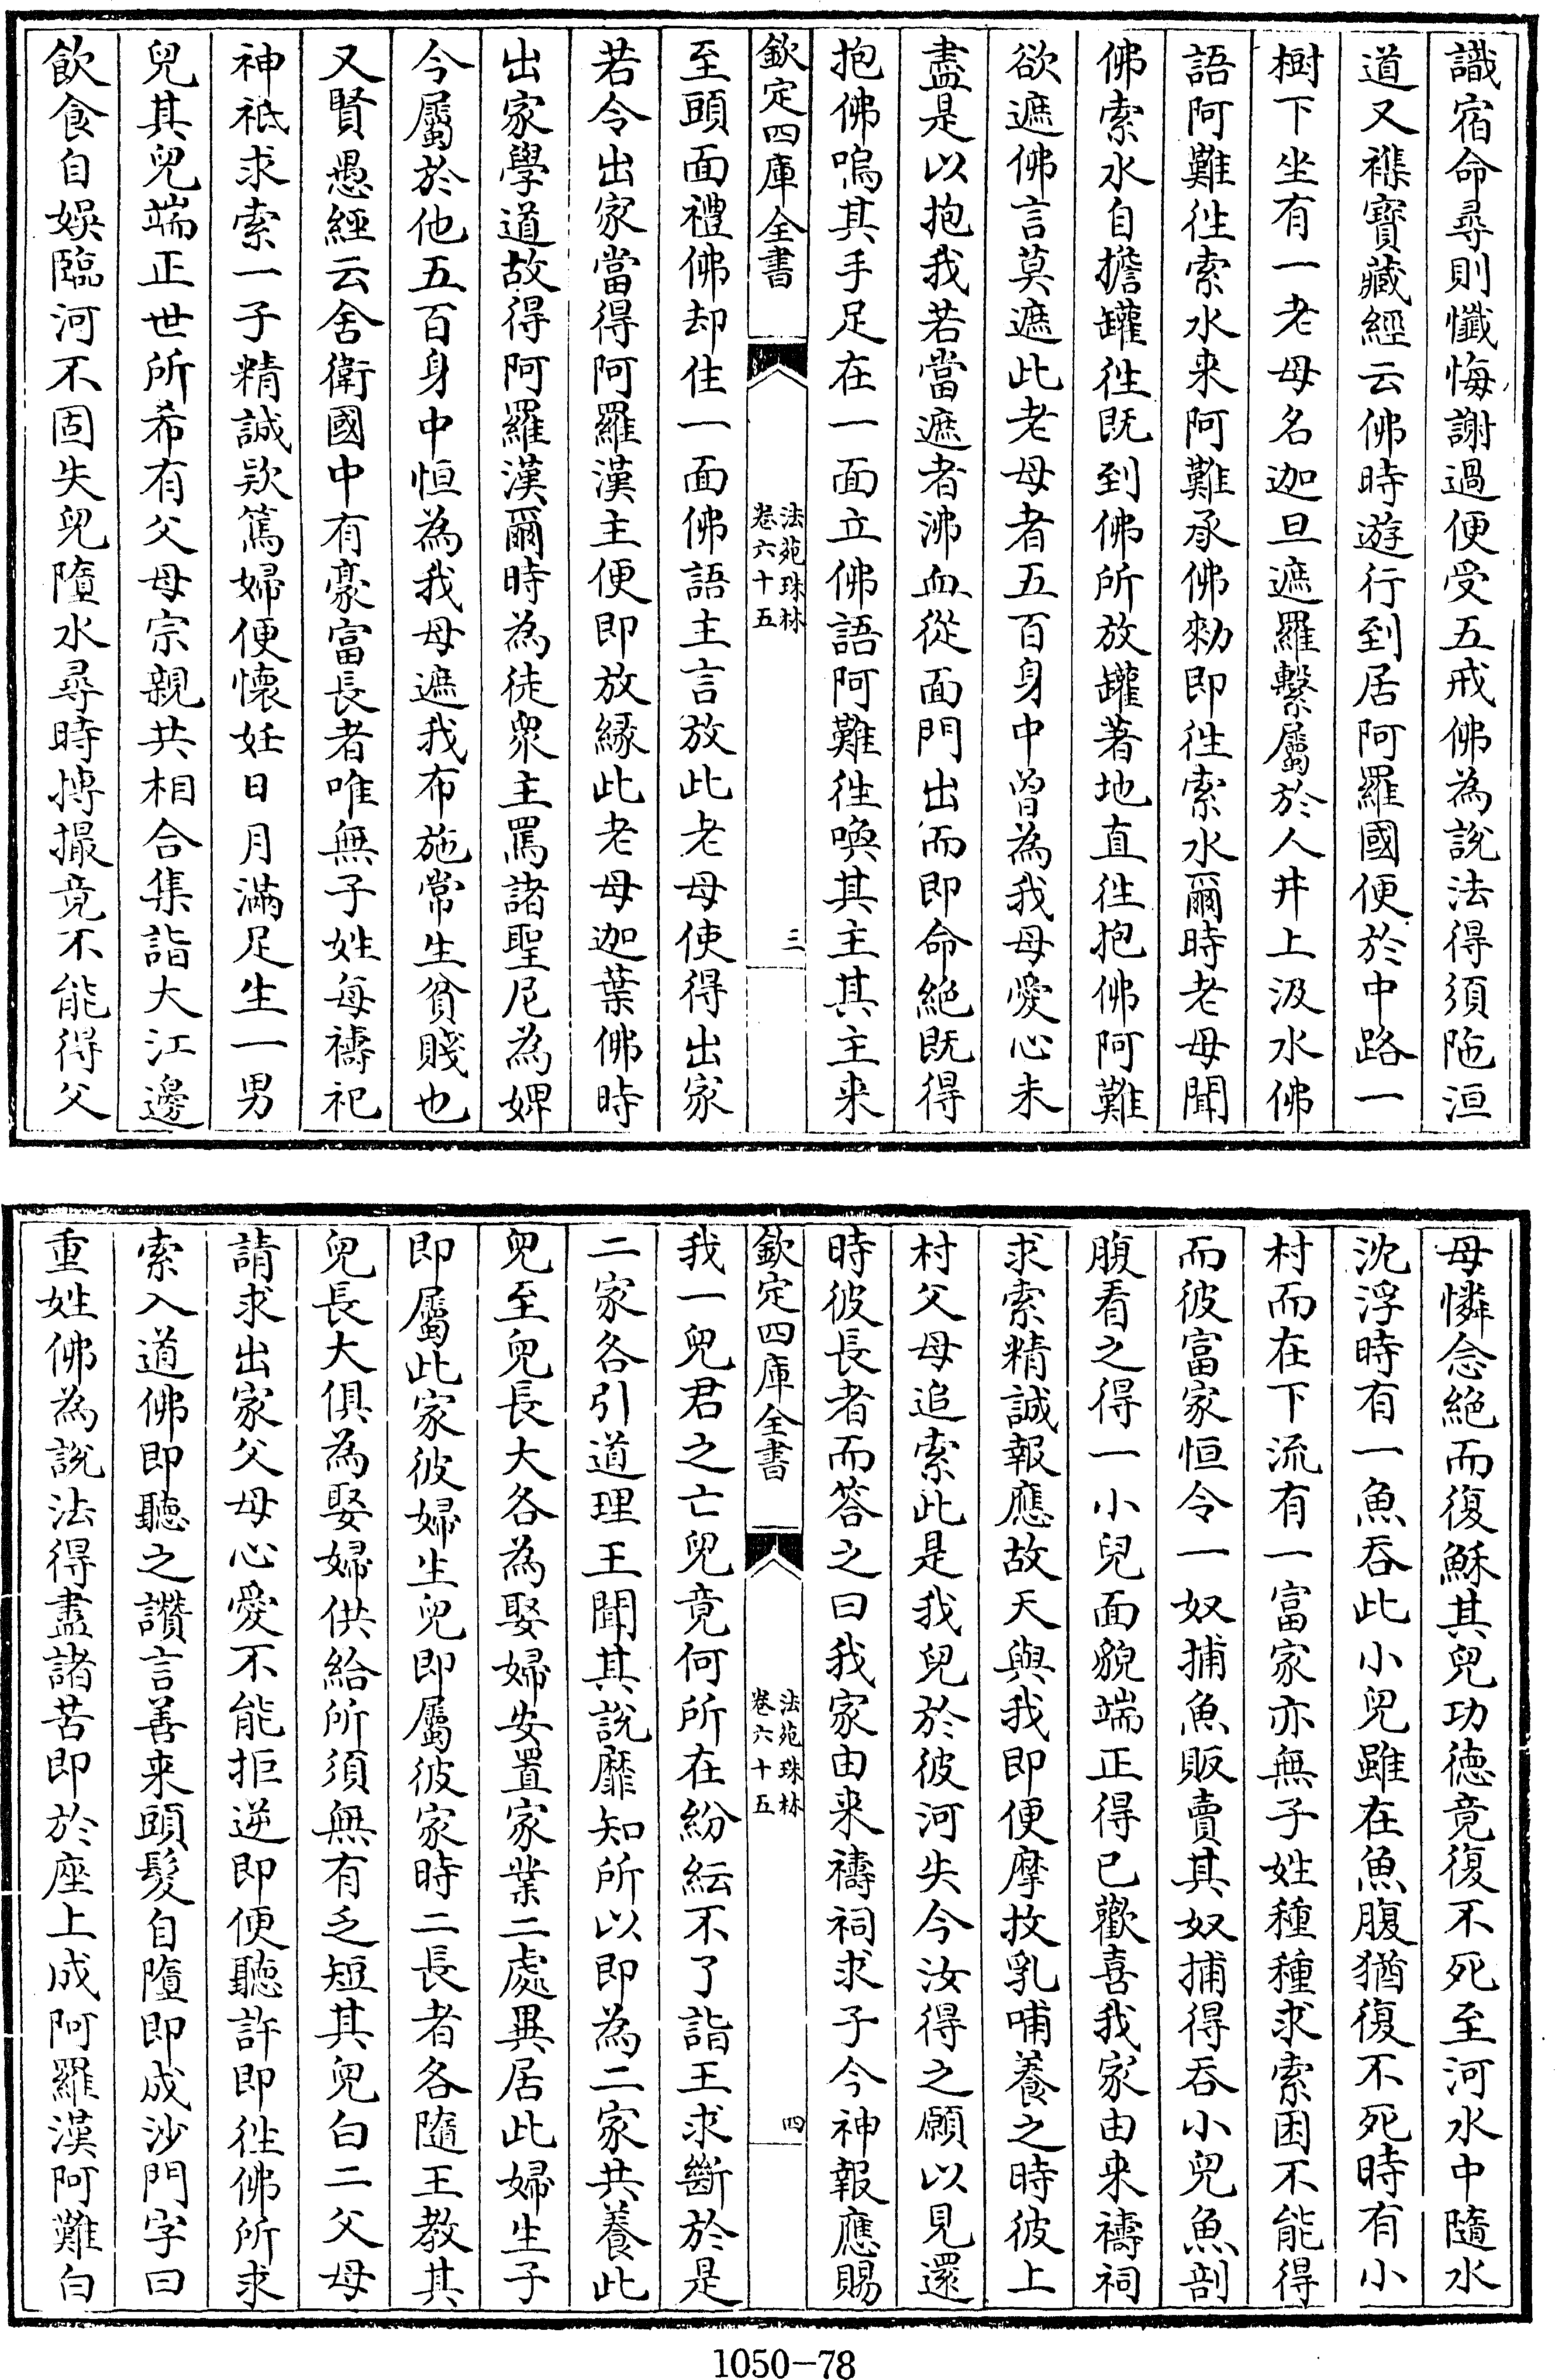 識宿命尋則懺悔謝過便受五戒佛為説法得須陁洹
道又襍寶藏經云佛時遊行到居阿羅國便於中路一
樹下坐有一老母名迦旦遮羅繫屬於人井上汲水佛
語阿難徃索水来阿難承佛勑即徃索水爾時老母聞
佛索水自擔罐徃既到佛所放罐著地直徃抱佛阿難
欲遮佛言莫遮此老母者五百身中曽為我母愛心未
盡是以抱我若當遮者沸血從面門出而即命絶既得
抱佛嗚其手足在一面立佛語阿難徃喚其主其主来
欽定四庫全書
法苑珠林
卷六十五
三
至頭面禮佛却住一面佛語主言放此老母使得出家
若令出家當得阿羅漢主便即放縁此老母迦葉佛時
出家學道故得阿羅漢爾時為徒衆主罵諸聖尼為婢
今屬於他五百身中恒為我母遮我布施常生貧賤也
又賢愚經云舍衛國中有豪富長者唯無子姓每禱祀
神祇求索一子精誠欵篤婦便懷妊日月滿足生一男
兒其兒端正世所希有父母宗親共相合集詣大江邊
飲食自娛臨河不固失兒隨水尋時摶撮竟不能得父
母憐念絶而復穌其兒功徳竟復不死至河水中隨水
沈浮時有一魚吞此小兒雖在魚腹猶復不死時有小
村而在下流有一富家亦無子姓種種求索困不能得
而彼富家恒令一奴捕魚販賣其奴捕得吞小兒魚剖
腹看之得一小兒面貌端正得已歡喜我家由来禱祠
求索精誠報應故天與我即便摩抆乳哺養之時彼上
村父母追索此是我兒於彼河失今汝得之願以見還
時彼長者而答之曰我家由来禱祠求子今神報應賜
欽定四庫全書
法苑珠林
卷六十五
四
我一兒君之亡兒竟何所在紛紜不了詣王求斷於是
二家各引道理王聞其説靡知所以即為二家共養此
兒至兒長大各為娶婦安置家業二處異居此婦生子
即屬此家彼婦生兒即屬彼家時二長者各隨王教其
兒長大俱為娶婦供給所須無有乏短其兒白二父母
請求出家父母心愛不能拒逆即便聽許即徃佛所求
索入道佛即聽之讃言善来頭髮自隨即成沙門字曰
重姓佛為説法得盡諸苦即於座上成阿羅漢阿難白
1050-78